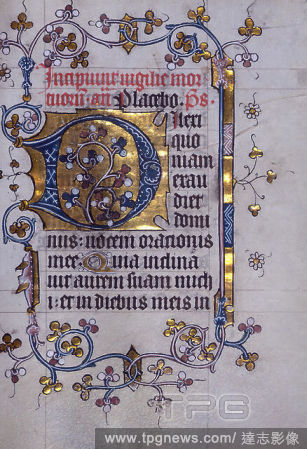 Incipiunt uigilie mor
tuorum. an Placebo. Ps.
Dilexi
quo
niam
exau
diet
domi
nus: uocem orationis
mee: Quia inclina
uit aurem suam mich
i: et in diebus meis in
TPG
www.tpgnews.com/達志影像